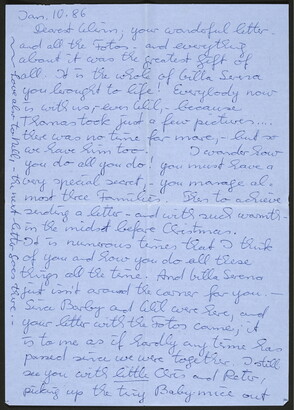 Jan. 10. 86
Dearest Clärin, your wonderful letter-
and all the Fotos. and everything
about it was the greatest gift of
all. It is the whole of Villa Serena
you brought to life! Everybody now
is with us, even Bill, - because
Thomas took just a few pictures....
there was no time for more, - but so
we have him too. I wonder how
you do all you do! you must have a
very special secret, - you manage al-
most three Families. Plus to achieve
sending a letter - and with such warmth -
in the midst before Christmas.
It is numerous times that I think
of you and how you do all these
things all the time. And Villa Serena
just isn't around the corner for you. -
Since Barby and Bill were here, and
your letter with the Fotos came, it
is to me as if hardly any time has
passed since we were together. I still
see you with little Chris and Peter,
picking up the tiny Baby mice out
Love also to Bill, - the next letter goes there!